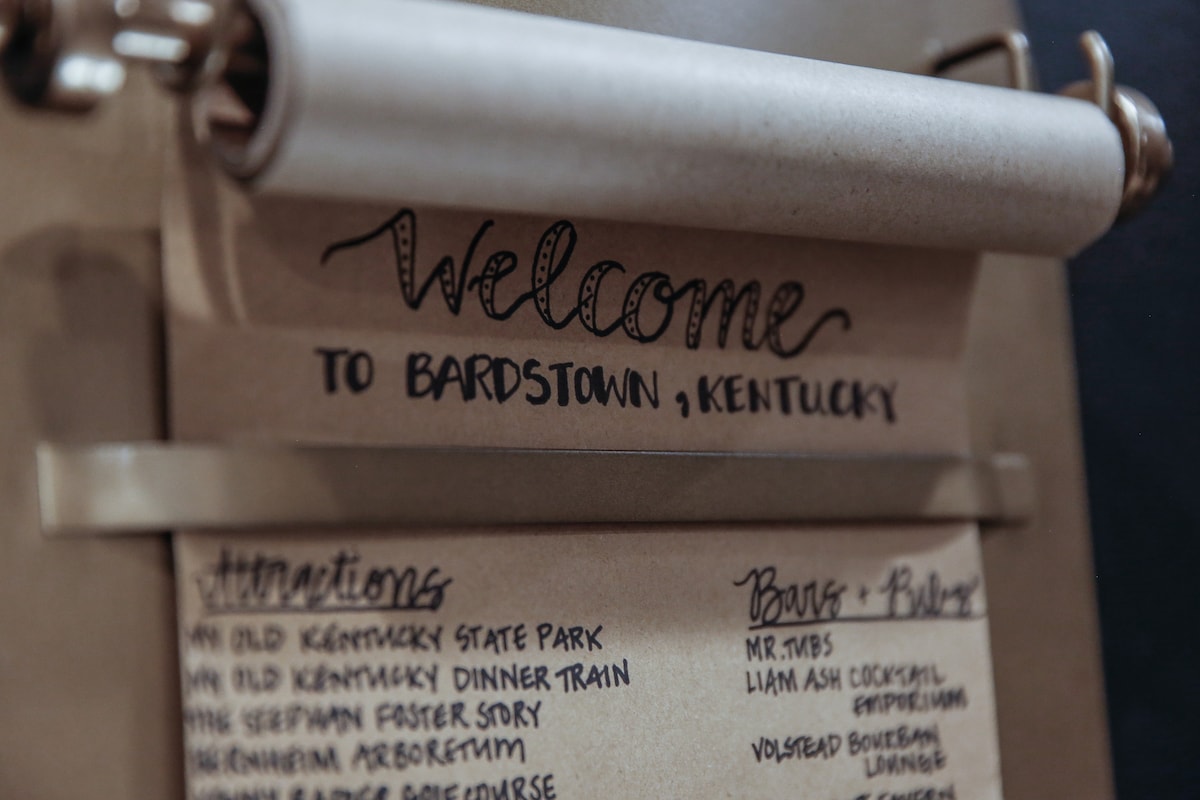 Welcome
TO BARDSTOWN, KENTUCKY
Attractions
MY OLD KENTUCKY STATE PARK
MY OLD KENTUCKY DINNER TRAIN
THE STEPHAN FOSTER STORY
BERNHEIM ARBORETUM
GOLF COURSE
Bars + Pubs
MR. TUBS
LIAM ASH COCKTAIL
EMPORIUM
VOLSTEAD BOURBAN
LOUNGE
TAVERN